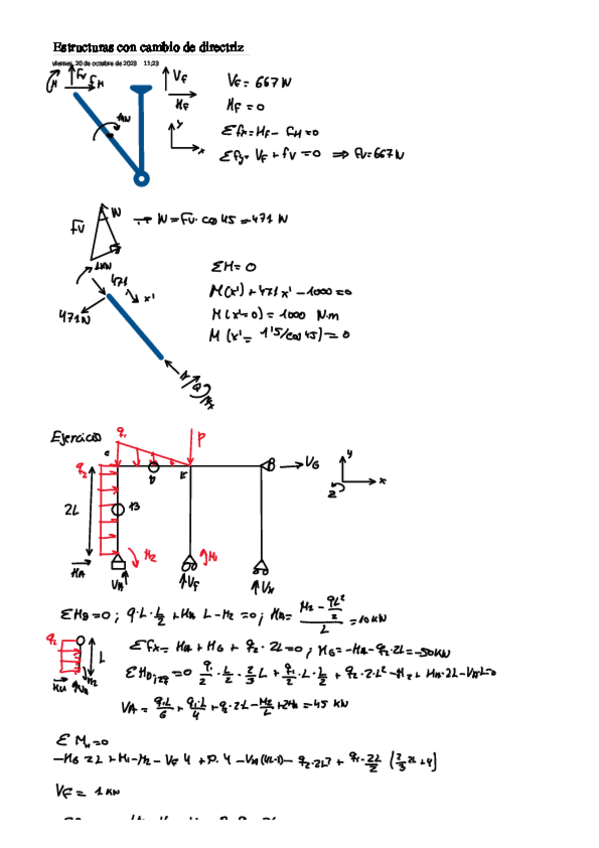 Estructuras con cambio de directriz
viernes, 20 de octubre de 2023 11:23
M Fv FH
VF
HF
VF = 667 N
HF = 0
y
x
Σfx = HF - FH = 0
Σfy = VF + fV = 0 ⇒ fV = 667 N
Fv N → N = Fv · cos 45 = 471 N
1kN
471 x'
471 N
ΣM = 0
M(x') + 471 x' - 1000 = 0
M(x'=0) = 1000 N·m
M(x' = 1'5/cos 45) = 0
Ejercicio
q1 P
q2 D B → VG
y
x
z
2L
HA VA M2 VF M1 VH
ΣMB = 0 ; q·L·L/2 + HA L - M2 = 0 ; HA = (M2 - qL²/2)/L = 10 kN
q2 L
HA VA M2
Σfx = HA + HG + q2 · 2L = 0 ; HG = -HA - q2·2L = -50 kN
= 0 q1/2 · L/2 · 2/3 L + q1/2 · L · L/2 + q2 · 2·L² - M2 + HA·2L - VA·L = 0
VA = q·L/6 + q1·L/4 + q2·2L - M2/L + 2HA = -45 kN
Σ M = 0
-HG 2L + M1 - M2 - VF 4 + P·4 - q2·2L² + q1·2L/2 (2/3 2L + 4)
VF = 1 kN